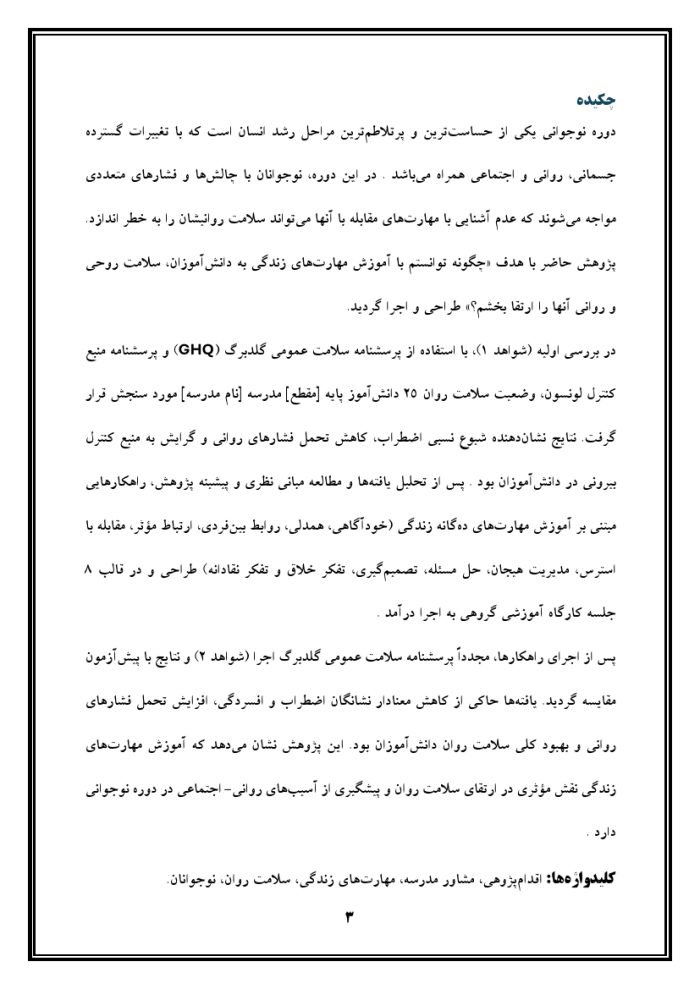 چکیده
دوره نوجوانی یکی از حساس‌ترین و پرتلاطم‌ترین مراحل رشد انسان است که با تغییرات گسترده
جسمانی، روانی و اجتماعی همراه می‌باشد . در این دوره، نوجوانان با چالش‌ها و فشارهای متعددی
مواجه می‌شوند که عدم آشنایی با مهارت‌های مقابله با آنها می‌تواند سلامت روانیشان را به خطر اندازد.
پژوهش حاضر با هدف «چگونه توانستم با آموزش مهارت‌های زندگی به دانش‌آموزان، سلامت روحی
و روانی آنها را ارتقا بخشم؟» طراحی و اجرا گردید.
در بررسی اولیه (شواهد ۱)، با استفاده از پرسشنامه سلامت عمومی گلدبرگ (GHQ) و پرسشنامه منبع
کنترل لونسون، وضعیت سلامت روان ۲۵ دانش‌آموز پایه [مقطع] مدرسه [نام مدرسه] مورد سنجش قرار
گرفت. نتایج نشان‌دهنده شیوع نسبی اضطراب، کاهش تحمل فشارهای روانی و گرایش به منبع کنترل
بیرونی در دانش‌آموزان بود . پس از تحلیل یافته‌ها و مطالعه مبانی نظری و پیشینه پژوهش، راهکارهایی
مبتنی بر آموزش مهارت‌های ده‌گانه زندگی (خودآگاهی، همدلی، روابط بین‌فردی، ارتباط مؤثر، مقابله با
استرس، مدیریت هیجان، حل مسئله، تصمیم‌گیری، تفکر خلاق و تفکر نقادانه) طراحی و در قالب ۸
جلسه کارگاه آموزشی گروهی به اجرا درآمد .
پس از اجرای راهکارها، مجدداً پرسشنامه سلامت عمومی گلدبرگ اجرا (شواهد ۲) و نتایج با پیش‌آزمون
مقایسه گردید. یافته‌ها حاکی از کاهش معنادار نشانگان اضطراب و افسردگی، افزایش تحمل فشارهای
روانی و بهبود کلی سلامت روان دانش‌آموزان بود. این پژوهش نشان می‌دهد که آموزش مهارت‌های
زندگی نقش مؤثری در ارتقای سلامت روان و پیشگیری از آسیب‌های روانی- اجتماعی در دوره نوجوانی
دارد .
کلیدواژه‌ها: اقدام‌پژوهی، مشاور مدرسه، مهارت‌های زندگی، سلامت روان، نوجوانان.
۳